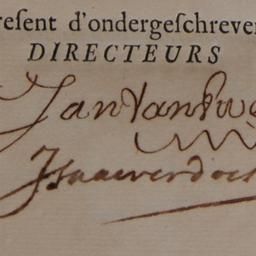 resent d'ondergeschreven
DIRECTEURS
Jan Van
Isaac